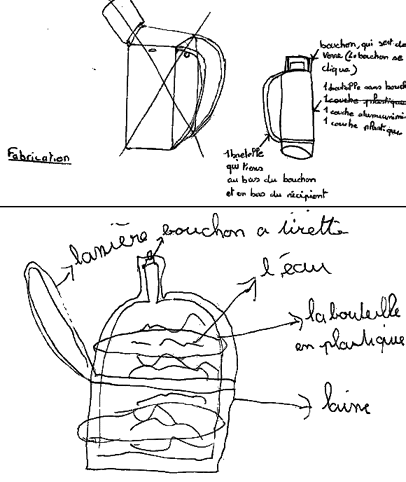 bouchon, qui sert de
verre (le bouchon se
clique)
1 bouteille sans bouch
1 couche plastique
1 couche alumunim
1 couche plastique
Fabrication
qui tiens
au bas du bouchon
et en bas du récipient
lanière
bouchon a tirette
l'eau
la bouteille
en plastique
laine